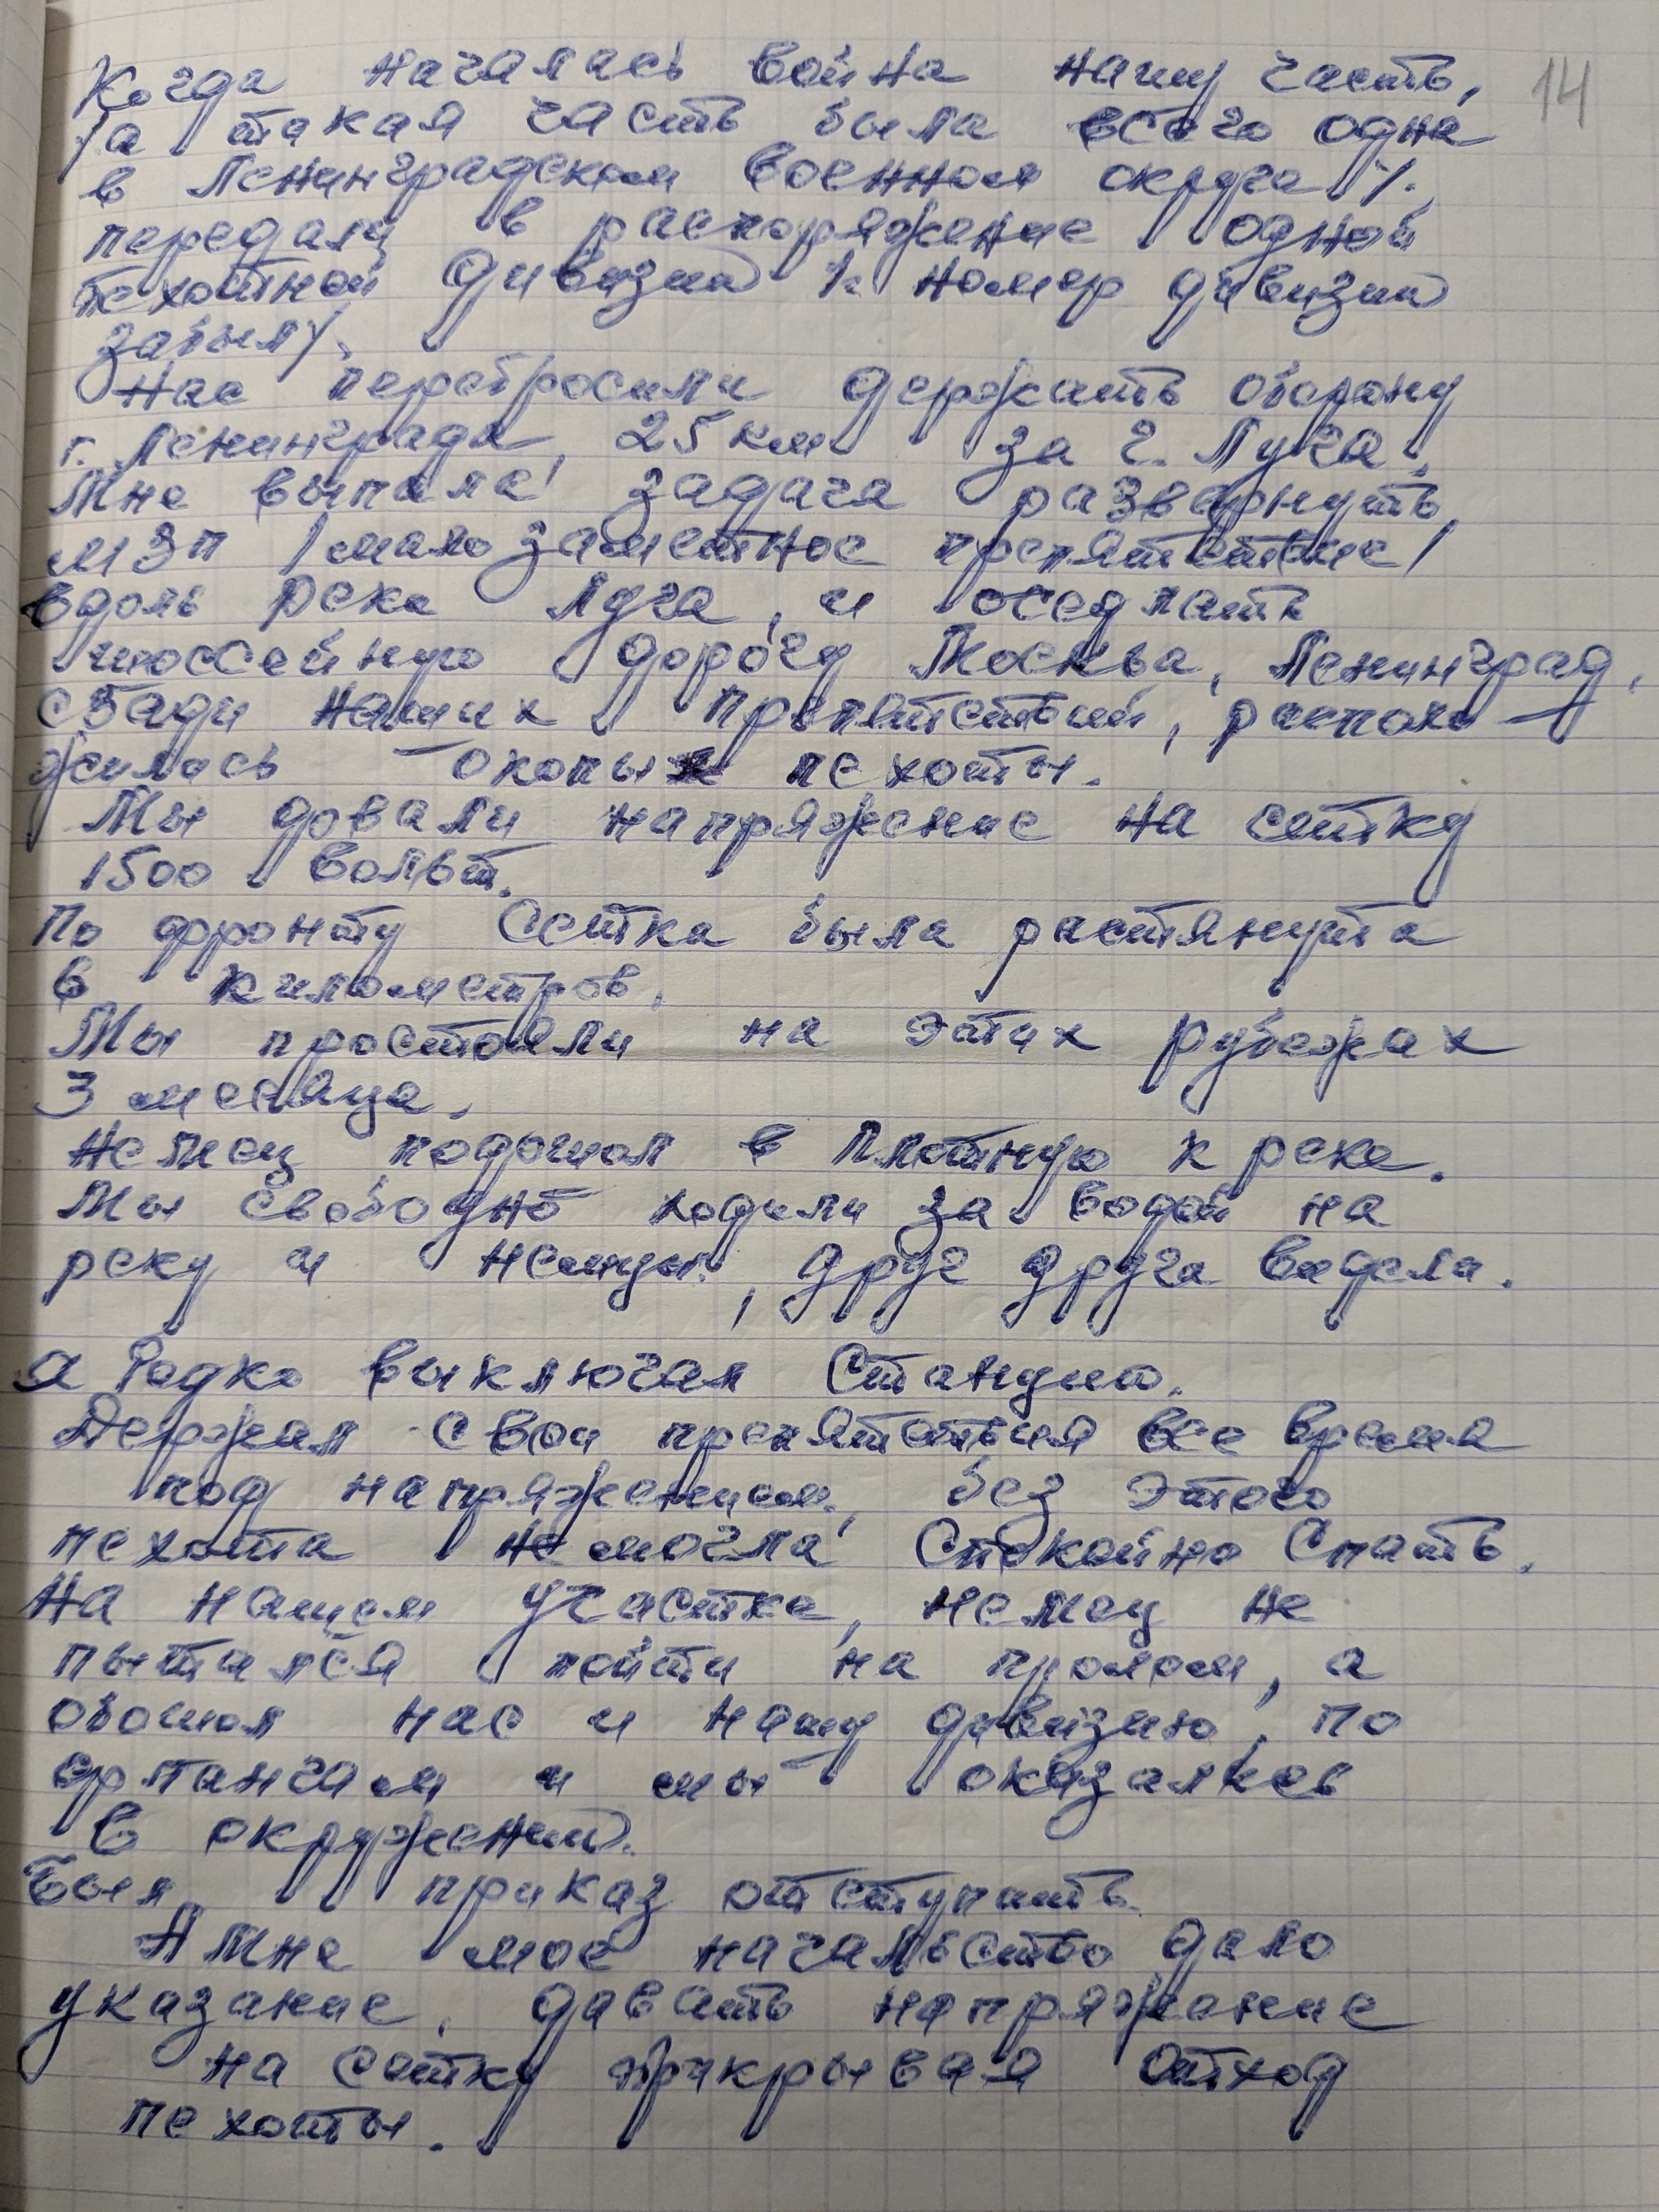 14
Когда началась война нашу часть,
/а такая часть была всего одна
в Ленинградском военном округе/.
передали в распоряжение одной
пехотной дивизии /. номер дивизии
забыл/.
Нас перебросили держать оборону
г. Ленинграда, 25 км за г. Луга.
Мне выпала задача развернуть
МЗП /мало заметное препятствие/
вдоль реки Луга, и оседлать
шоссейную дорогу Москва, Ленинград,
сзади наших препятствий, располо-
жилась окопы пехоты.
Мы довали напряжение на сетку
1500 вольт.
По фронту Сетка была растянута
6 километров.
Мы простояли на этих рубежах
3 месяца.
Немец подошол в плотную к реке.
Мы свободно ходили за водой на
реку и немцы, друг друга видели.
Я Редко выключал Станцию.
Держал свои препятствия все время
под напряжением, без этого
пехота не могла спокойно спать.
На нашем участке, немец не
пытался пойти на пролом, а
обошол нас и нашу дивизию, по
флангам и мы оказались
в окружении.
Был приказ отступать.
А мне мое начальство дало
указание, давать напряжение
на сетку прикрывая отход
пехоты.